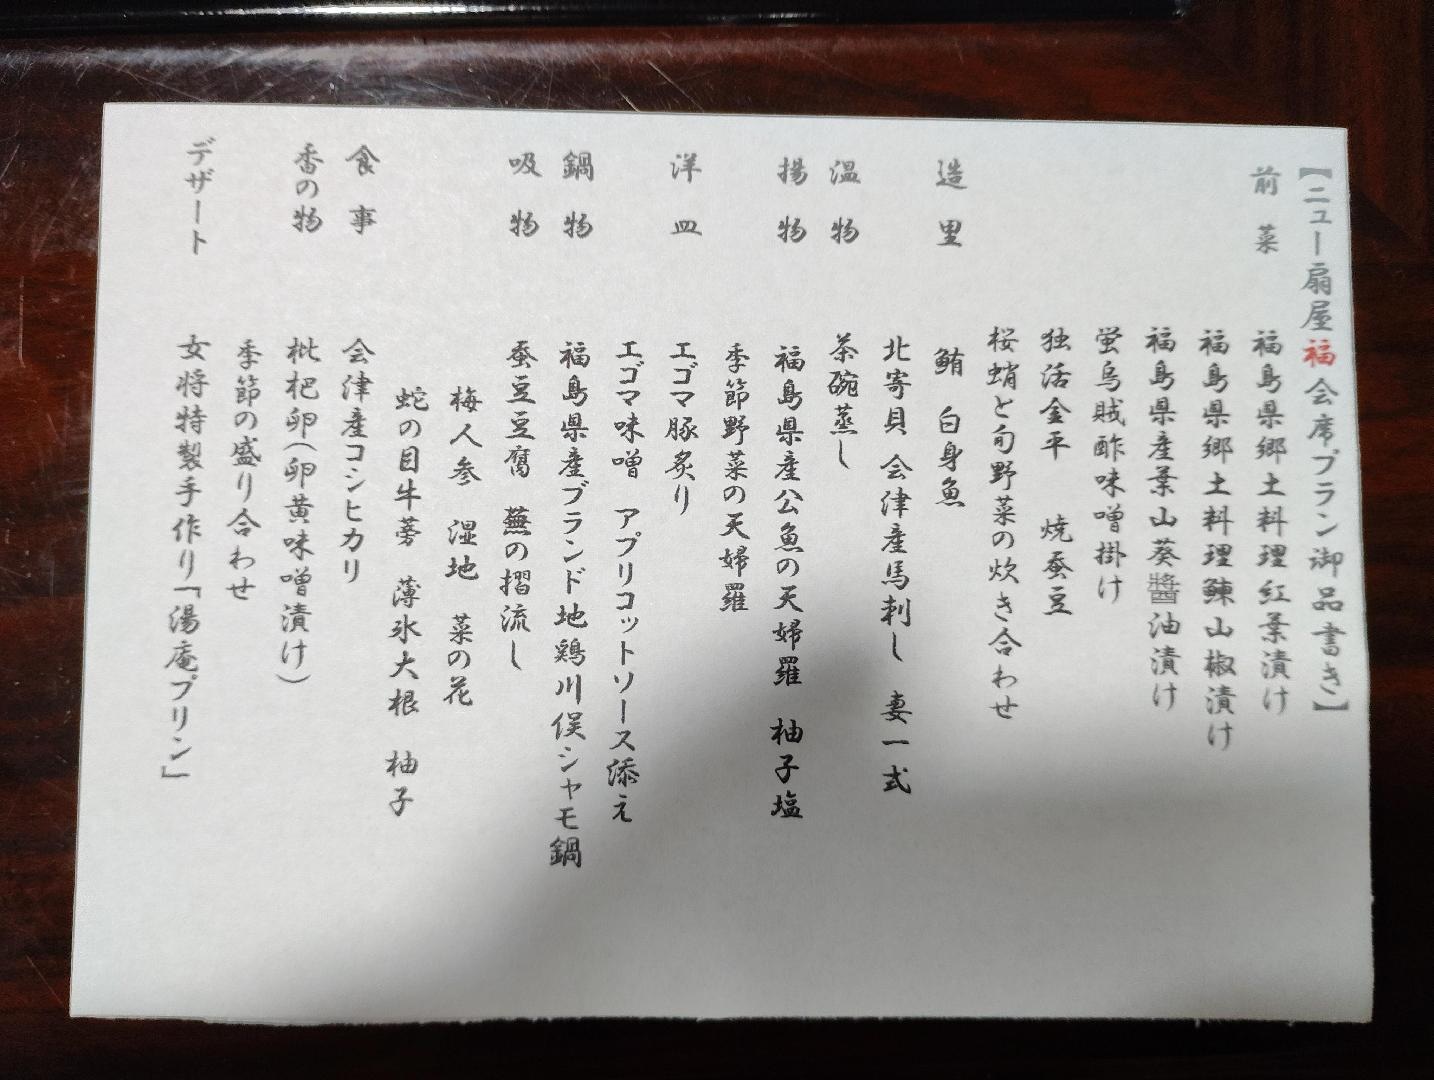 【ニュー扇屋福会席プラン御品書き】
前菜 福島県郷土料理紅葉漬け
福島県郷土料理鰊山椒漬け
福島県産葉山葵醬油漬け
蛍烏賊酢味噌掛け
独活金平 焼蚕豆
桜蛸と旬野菜の炊き合わせ
造里 鮪 白身魚
北寄貝 会津産馬刺し 妻一式
温物 茶碗蒸し
揚物 福島県産公魚の天婦羅 柚子塩
季節野菜の天婦羅
洋皿 エゴマ豚炙り
エゴマ味噌 アプリコットソース添え
鍋物 福島県産ブランド地鶏川俣シャモ鍋
吸物 蚕豆豆腐 蕪の摺流し
梅人参 湿地 菜の花
蛇の目牛蒡 薄氷大根 柚子
食事 会津産コシヒカリ
香の物 枇杷卵(卵黄味噌漬け)
季節の盛り合わせ
デザート 女将特製手作り「湯庵プリン」